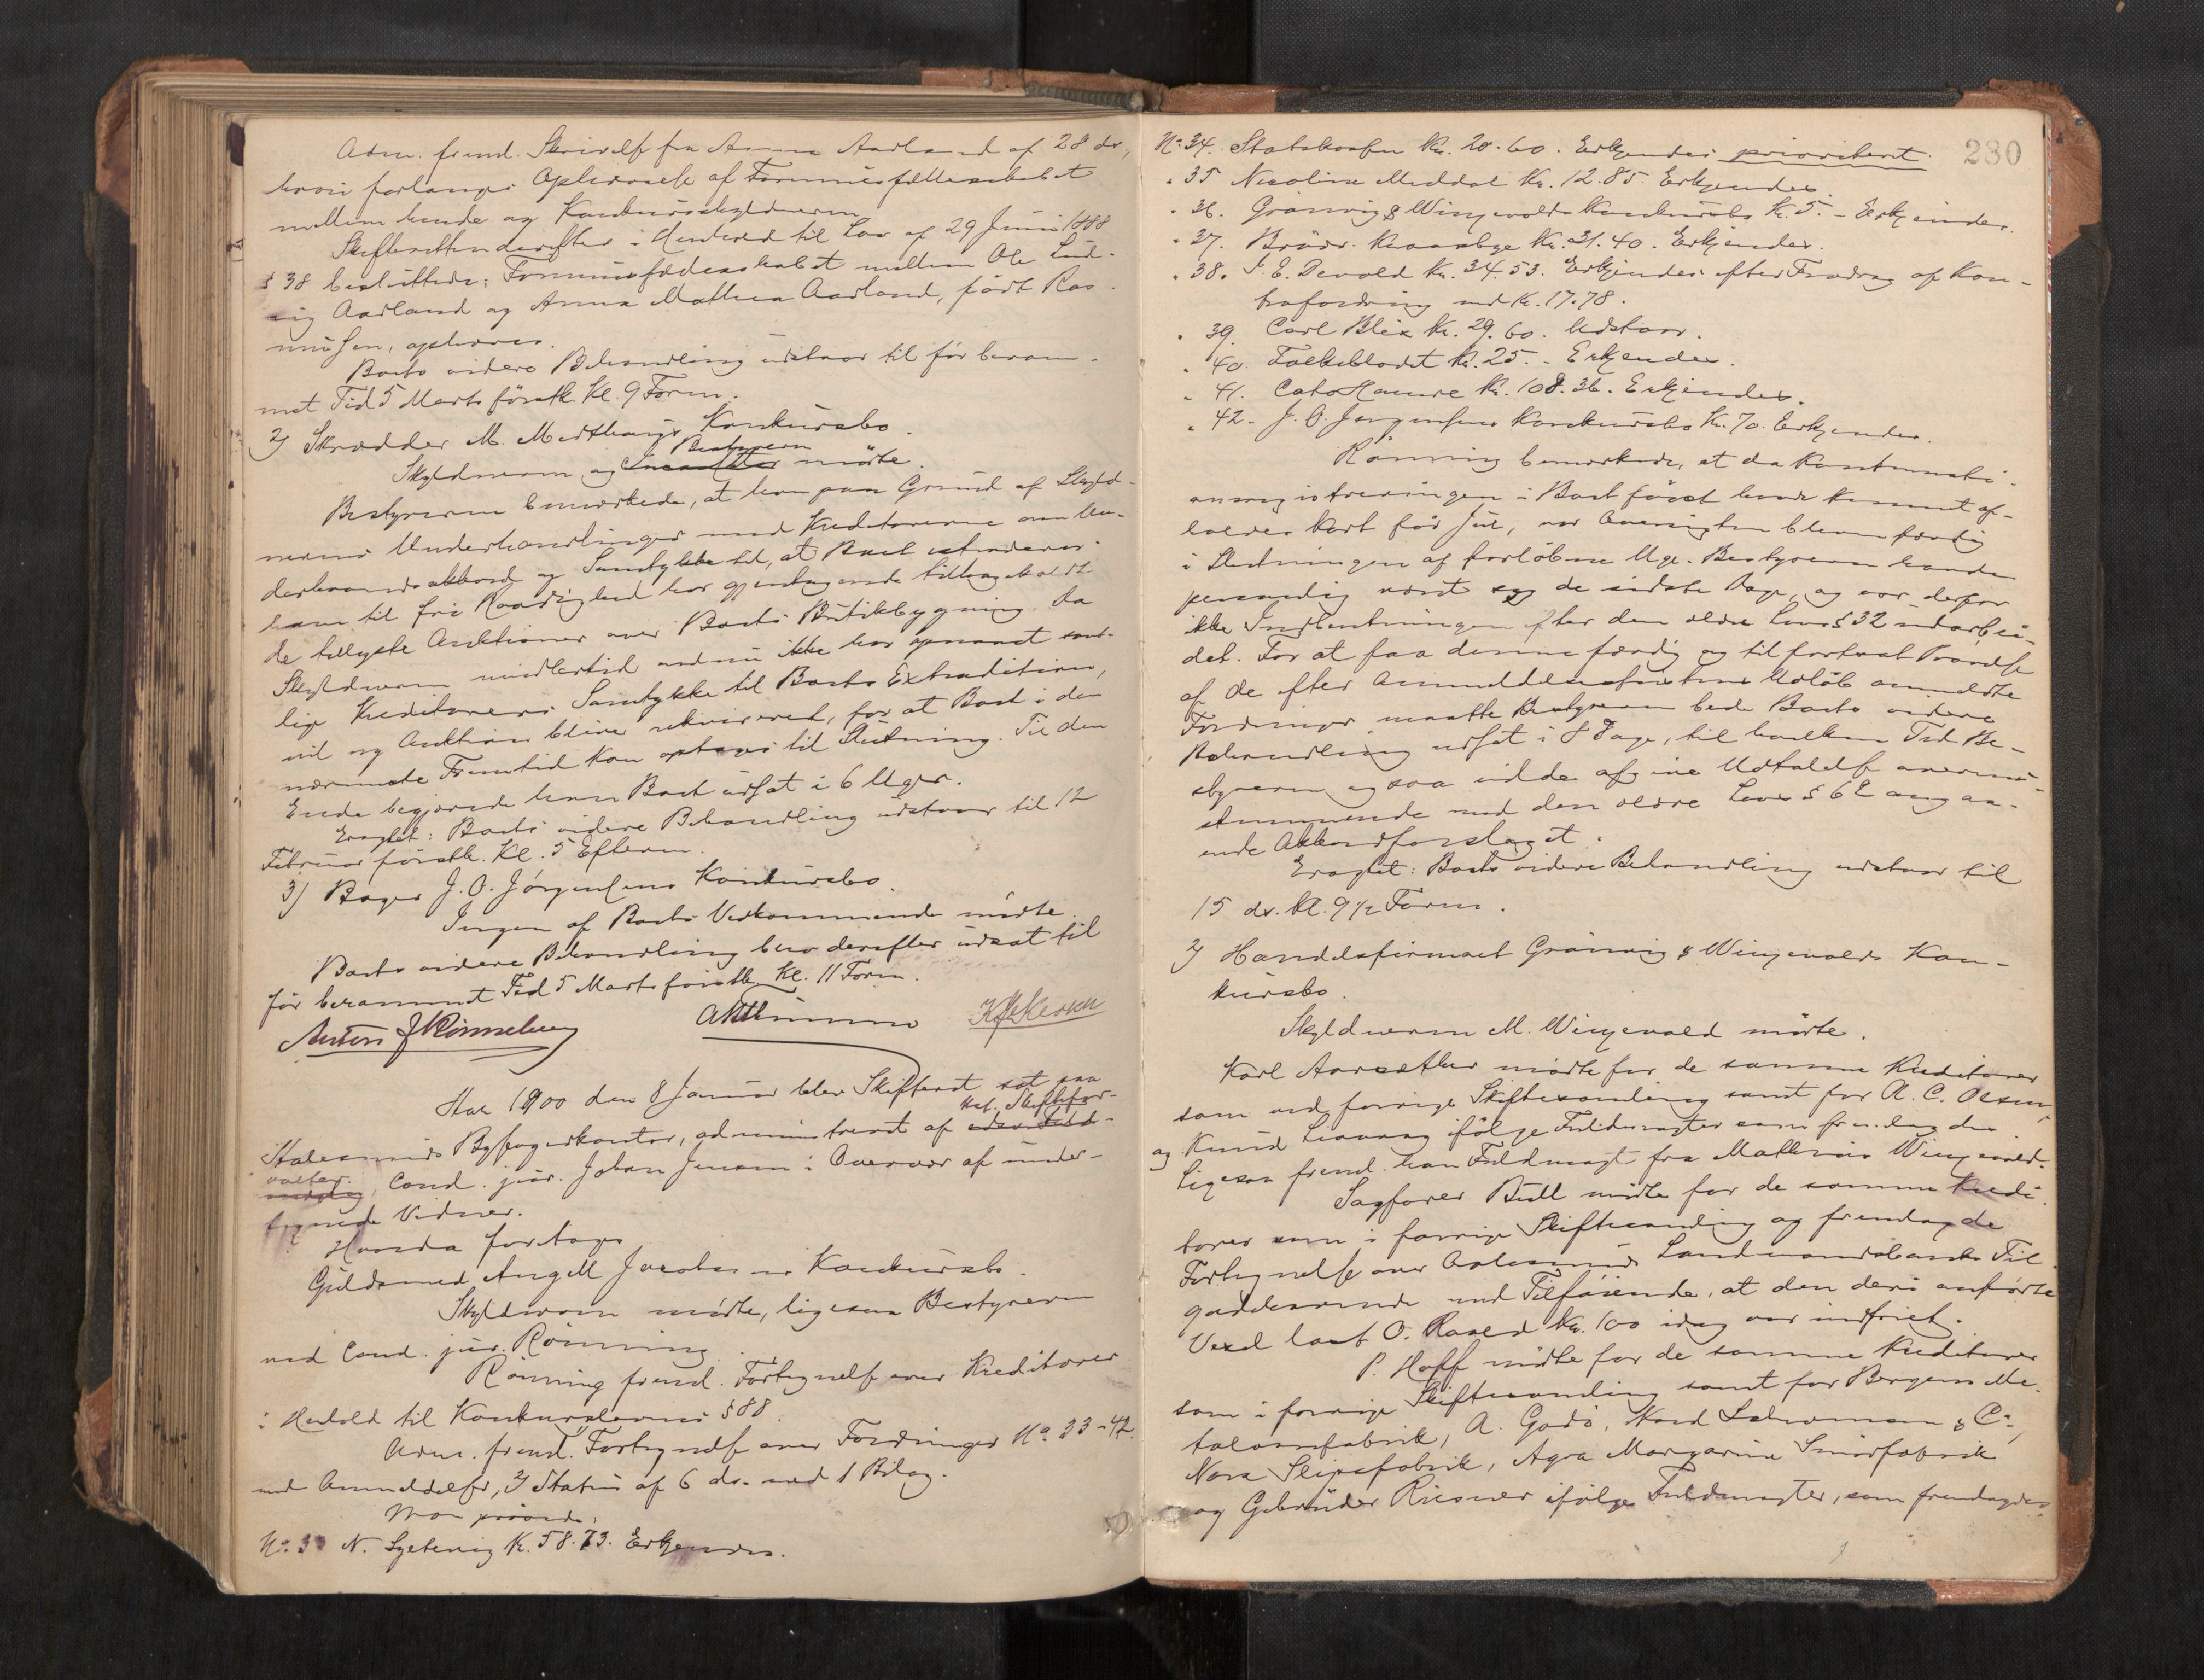 Adm. fremd. Skrivelse fra Anna Aarland af 28 ds,
hvori forlanges Ophævelse af Formuesfællesskabet
mellem hende og Konkursskyldneren.
Skifteretten derefter i Henhold til Lov af 29 Juni 1888
§ 38 besluttede: Formuesfællesskabet mellem Ole Lud-
vig Aarland og Anna Mathea Aarland, født Ras-
mussen, ophæves.
Boets videre Behandling udstaar til før beram-
met Tid 5 Marts førstk. Kl. 9 Form.
2) Skrædder M. Konkursbo.
Bestyreren
Skyldneren og mødte.
Bestyreren bemærkede, at han paa Grund af Skyld-
nerens Underhandlinger med Kreditorerne om Un-
derhaandsakkord og Samtykke til, at Boet extraderes
ham til fri Raadighed har gjentagende tilbageholdt
de tillyste Auktioner over Boets Butikbygning. Da
Skyldneren imidlertid endnu ikke har opnaaet samt-
lige Kreditorers Samtykke til Boets Extradition,
vil ny Auktion blive rekvireret, for at Boet i den
nærmeste Fremtid kan optages til Slutning. Til den
Ende begjærede han Boet udsat i 6 Uger.
Eragtet: Boets videre Behandling udstaar til 12
Februar førstk. Kl. 5 Efterm.
3) Bager J. O. Jørgensens Konkursbo.
Ingen af Boets Vedkommende mødte.
Boets videre Behandling blev derefter udsat til
før berammet Tid 5 Marts førstk. Kl. 11 Form.
Anton J Rønneberg
Aar 1900 den 8 Januar blev Skifteret sat paa
kst. Skiftefor-
Aalesunds Byfogedkontor, administreret af
valter
Cand. jur. Johan Jensen i Overvær af under-
tegnede Vidner.
Hvorda foretoges
Guldsmed Angell Jacobsens Konkursbo.
Skyldneren mødte, ligesaa Bestyreren
ved Cand. jur. Rønning.
Rønning fremd. Fortegnelse over Kreditorer
i Henhold til Konkurslovens § 88.
Adm. fremd. Fortegnelse over Fordringer No. 33-42.
med Anmeldelser, 2) Status af 6 ds. med 1 Bilag.
Man prøvede:
No. 33 N. Kr. 58.73. Erkjendes.
230
No. 34. Statskassen Kr. 20.60. Erkjendes prioriteret.
" 35 Nicoline Meddal Kr. 12.85. Erkjendes.
" 36. Grønvig & Wingevolds Konkursbo Kr. 5.- Erkjendes.
" 37. Brødr. Kaarbye Kr. 31.40. Erkjendes.
" 38. O. E. Devold Kr. 34.53. Erkjendes efter Fradrag af Kon-
trafordring med Kr. 17.78.
" 39. Carl Blix Kr. 29.60. Udstaar.
" 40. Folkebladet Kr. 25.- Erkjendes.
" 41. Cato Hamre Kr. 108.36. Erkjendes.
" 42. J. O. Jørgensens Konkursbo Kr. 70. Erkjendes.
Rønning bemærkede, at da
i Boet først havde kunnet af-
holdes kort før Jul, var Oversigten bleven færdig
i Slutningen af forløbne Uge. Bestyreren havde
personlig været syg de sidste Dage, og var derfor
ikke Indberetningen efter den ældre Lovs § 32 udarbei-
det. For at faa denne færdig og til fortsat Prøvelse
af de efter Anmeldelsesfristens Udløb anmeldte
Fordringer maatte Bestyreren bede Boets videre
Behandling udsat i 8 Dage, til hvilken Tid Be-
styreren ogsaa vilde afgive Udtalelse overens-
stemmende med den ældre Lovs § 62 angaa-
ende Akkordforslaget.
Eragtet: Boets videre Behandling udstaar til
15 ds. Kl. 9 1/2 Form.
2) Handelsfirmaet Grønvig & Wingevolds Kon-
kursbo.
Skyldneren M. Wingevold mødte.
Karl Aarsæther mødte for de samme Kreditorer
som ved forrige Skiftesamling samt for A. C. Olsen
og Knud Liavaag ifølge Fuldmagter som fremlagdes.
Ligesaa fremd. han Fuldmagt fra Mathias Wingevold.
Sagfører Bull mødte for de samme Kredi-
torer som i forrige Skiftesamling og fremlagde
Fortegnelse over Aalesunds Landmandsbanks Til-
godehavende med Tilføiende, at den deri anførte
Vexel lat O. Rased Kr. 100 idag var indfriet.
P. Hoff mødte for de samme Kreditorer
som i forrige Skiftesamling samt for Bergens Me-
talvarefabrik, A. Godø, Nord Lehmann & Co.,
Nora Slipsfabrik, Agra Margarin Smørfabrik
og Gebrüder Riesner ifølge Fuldmagter, som fremlagdes.